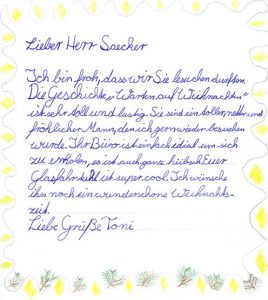 Lieber Herr Saecker
Ich bin froh, dass wir Sie besuchen durften.
Die Geschichte „Warten auf Weihnachten"
ist sehr toll und lustig. Sie sind ein toller, netter und
fröhlicher Mann, den ich gern wieder besuchen
würde. Ihr Büro ist einfach idial um sich
zu erholen, es ist auch ganz hübsch. Euer
Glasfahrstuhl ist super cool. Ich wünsche
ihn noch ein wunderschöne Weihnahts-
zeit.
Liebe Grüße Toni